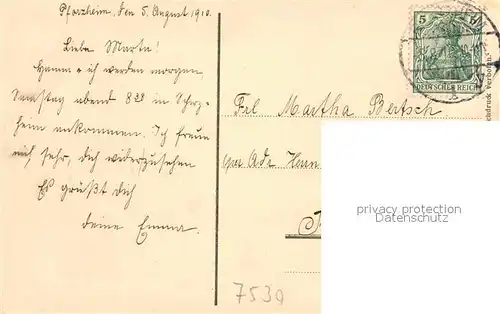 Pforzheim, den 5. August 1910.
Liebe Martha!
Mamma u. ich werden morgen
Samstag abend 8 23 in
ankommen. Ich freue
mich sehr, dich wiederzusehen
Es grüßt dich
deine Emma.
5
DEUTSCHES REICH
Frl. Martha Bertsch
per Adr. Herrn
privacy protection
Datenschutz
7539